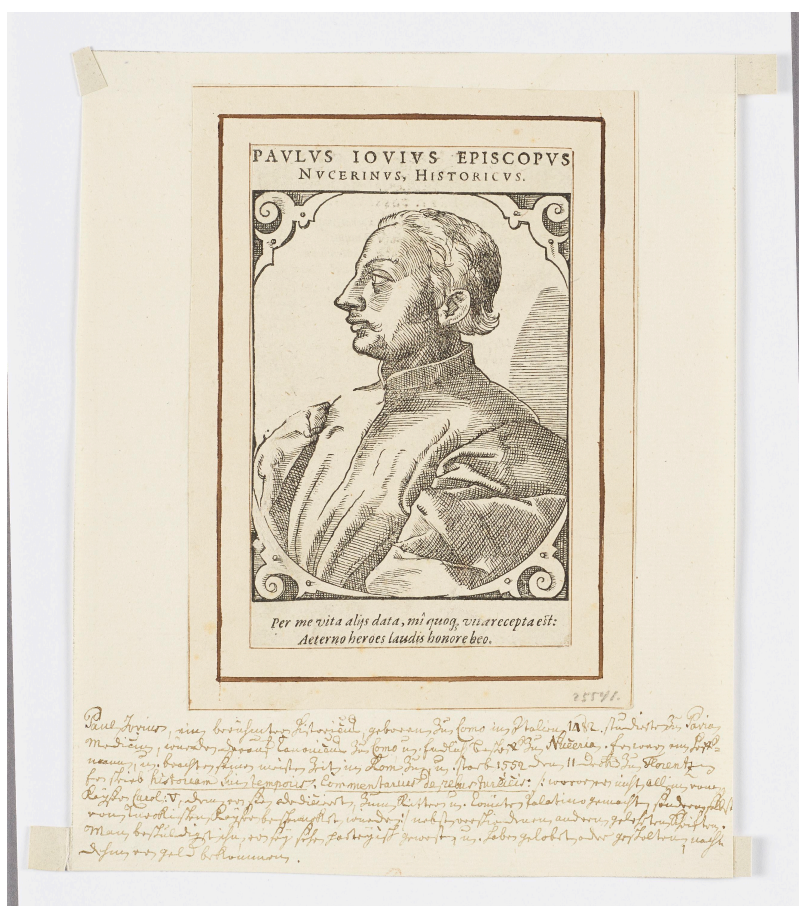 PAVLVS IOVIVS EPISCOPVS
NVCERINVS, HISTORICVS.
Per me vita alijs data, mî quoq, vita recepta est:
Aeterno heroes laudis honore beo.
25541.
Paul Jovius, ein berühmter Historicus, geboren zu Como in Italien, 1482. studierte zu Pavia
Medicin, wurde darauf Canonicus zu Como u. endlich Bischof zu Nuceria,
Rom zu, u. starb 1552 den 11 Dec. zu Florentz
historiam sui temporis, Commentarius de rebus turcicis:
Käyser Carol: V, dem er sie dedicirt, zum Ritter u. Comite Palatino gemacht, sondern selbst
vom türckischen Käyser beschenckt wurde; nebst verschiedenen andern gelehrten Schriften.
Man beschuldigt ihn, er sey sehr partheyisch gewest, u. habe gelobet oder gescholten, nach
dehm er geld bekommen.